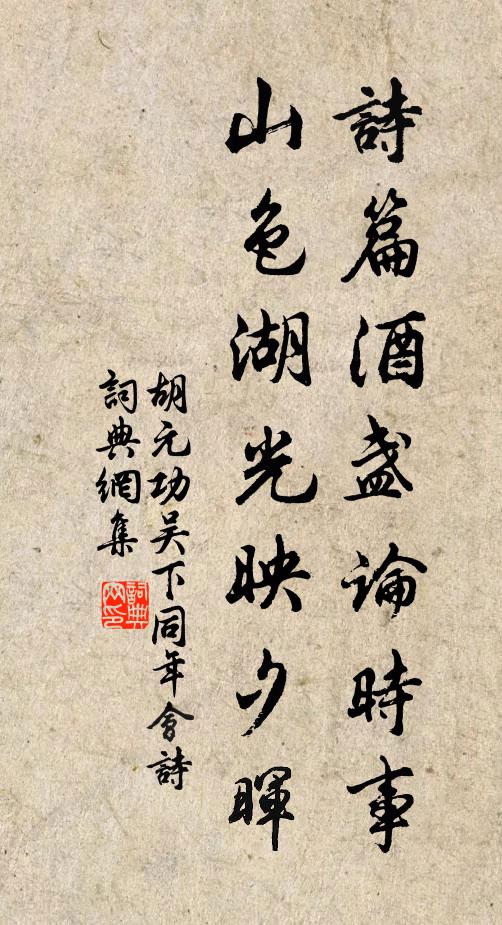 詩篇酒盞論時事
山色湖光映夕暉
胡元功吳下同年會詩
詞典網集
詞典網印